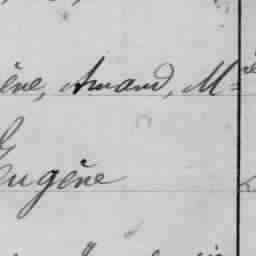 ène, Amand, M
Eugène